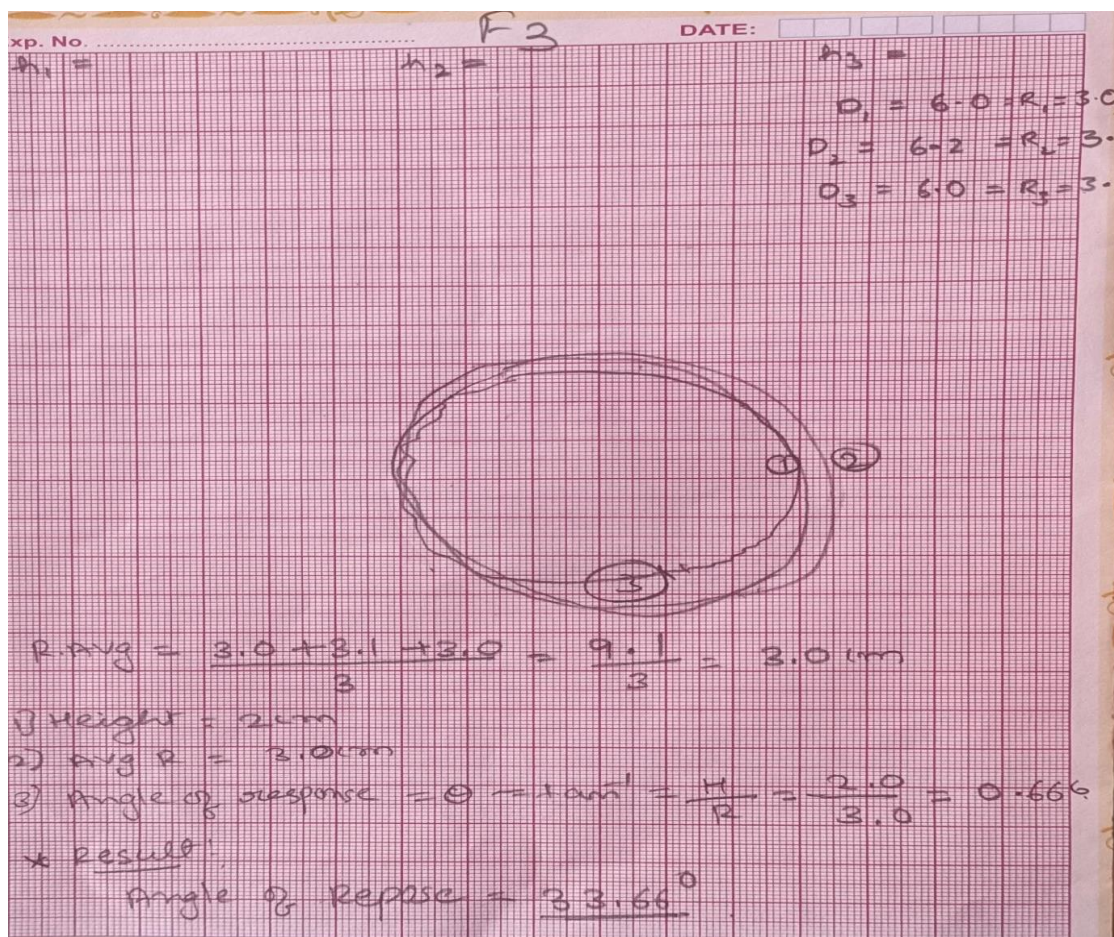 F3
xp. No. DATE:
h₁ = h₂ = h₃ =
D₁ = 6.0 = R₁ = 3.0
D₂ = 6.2 = R₂ = 3.
D₃ = 6.0 = R₃ = 3.
① ②
③
R.Avg = 3.0 + 3.1 + 3.0 / 3 = 9.1 / 3 = 3.0 cm
1) Height = 2cm
2) Avg R = 3.0cm
3) Angle of response = θ = tan⁻¹ = H / R = 2.0 / 3.0 = 0.666
* Result:
Angle of Repose = 33.66°